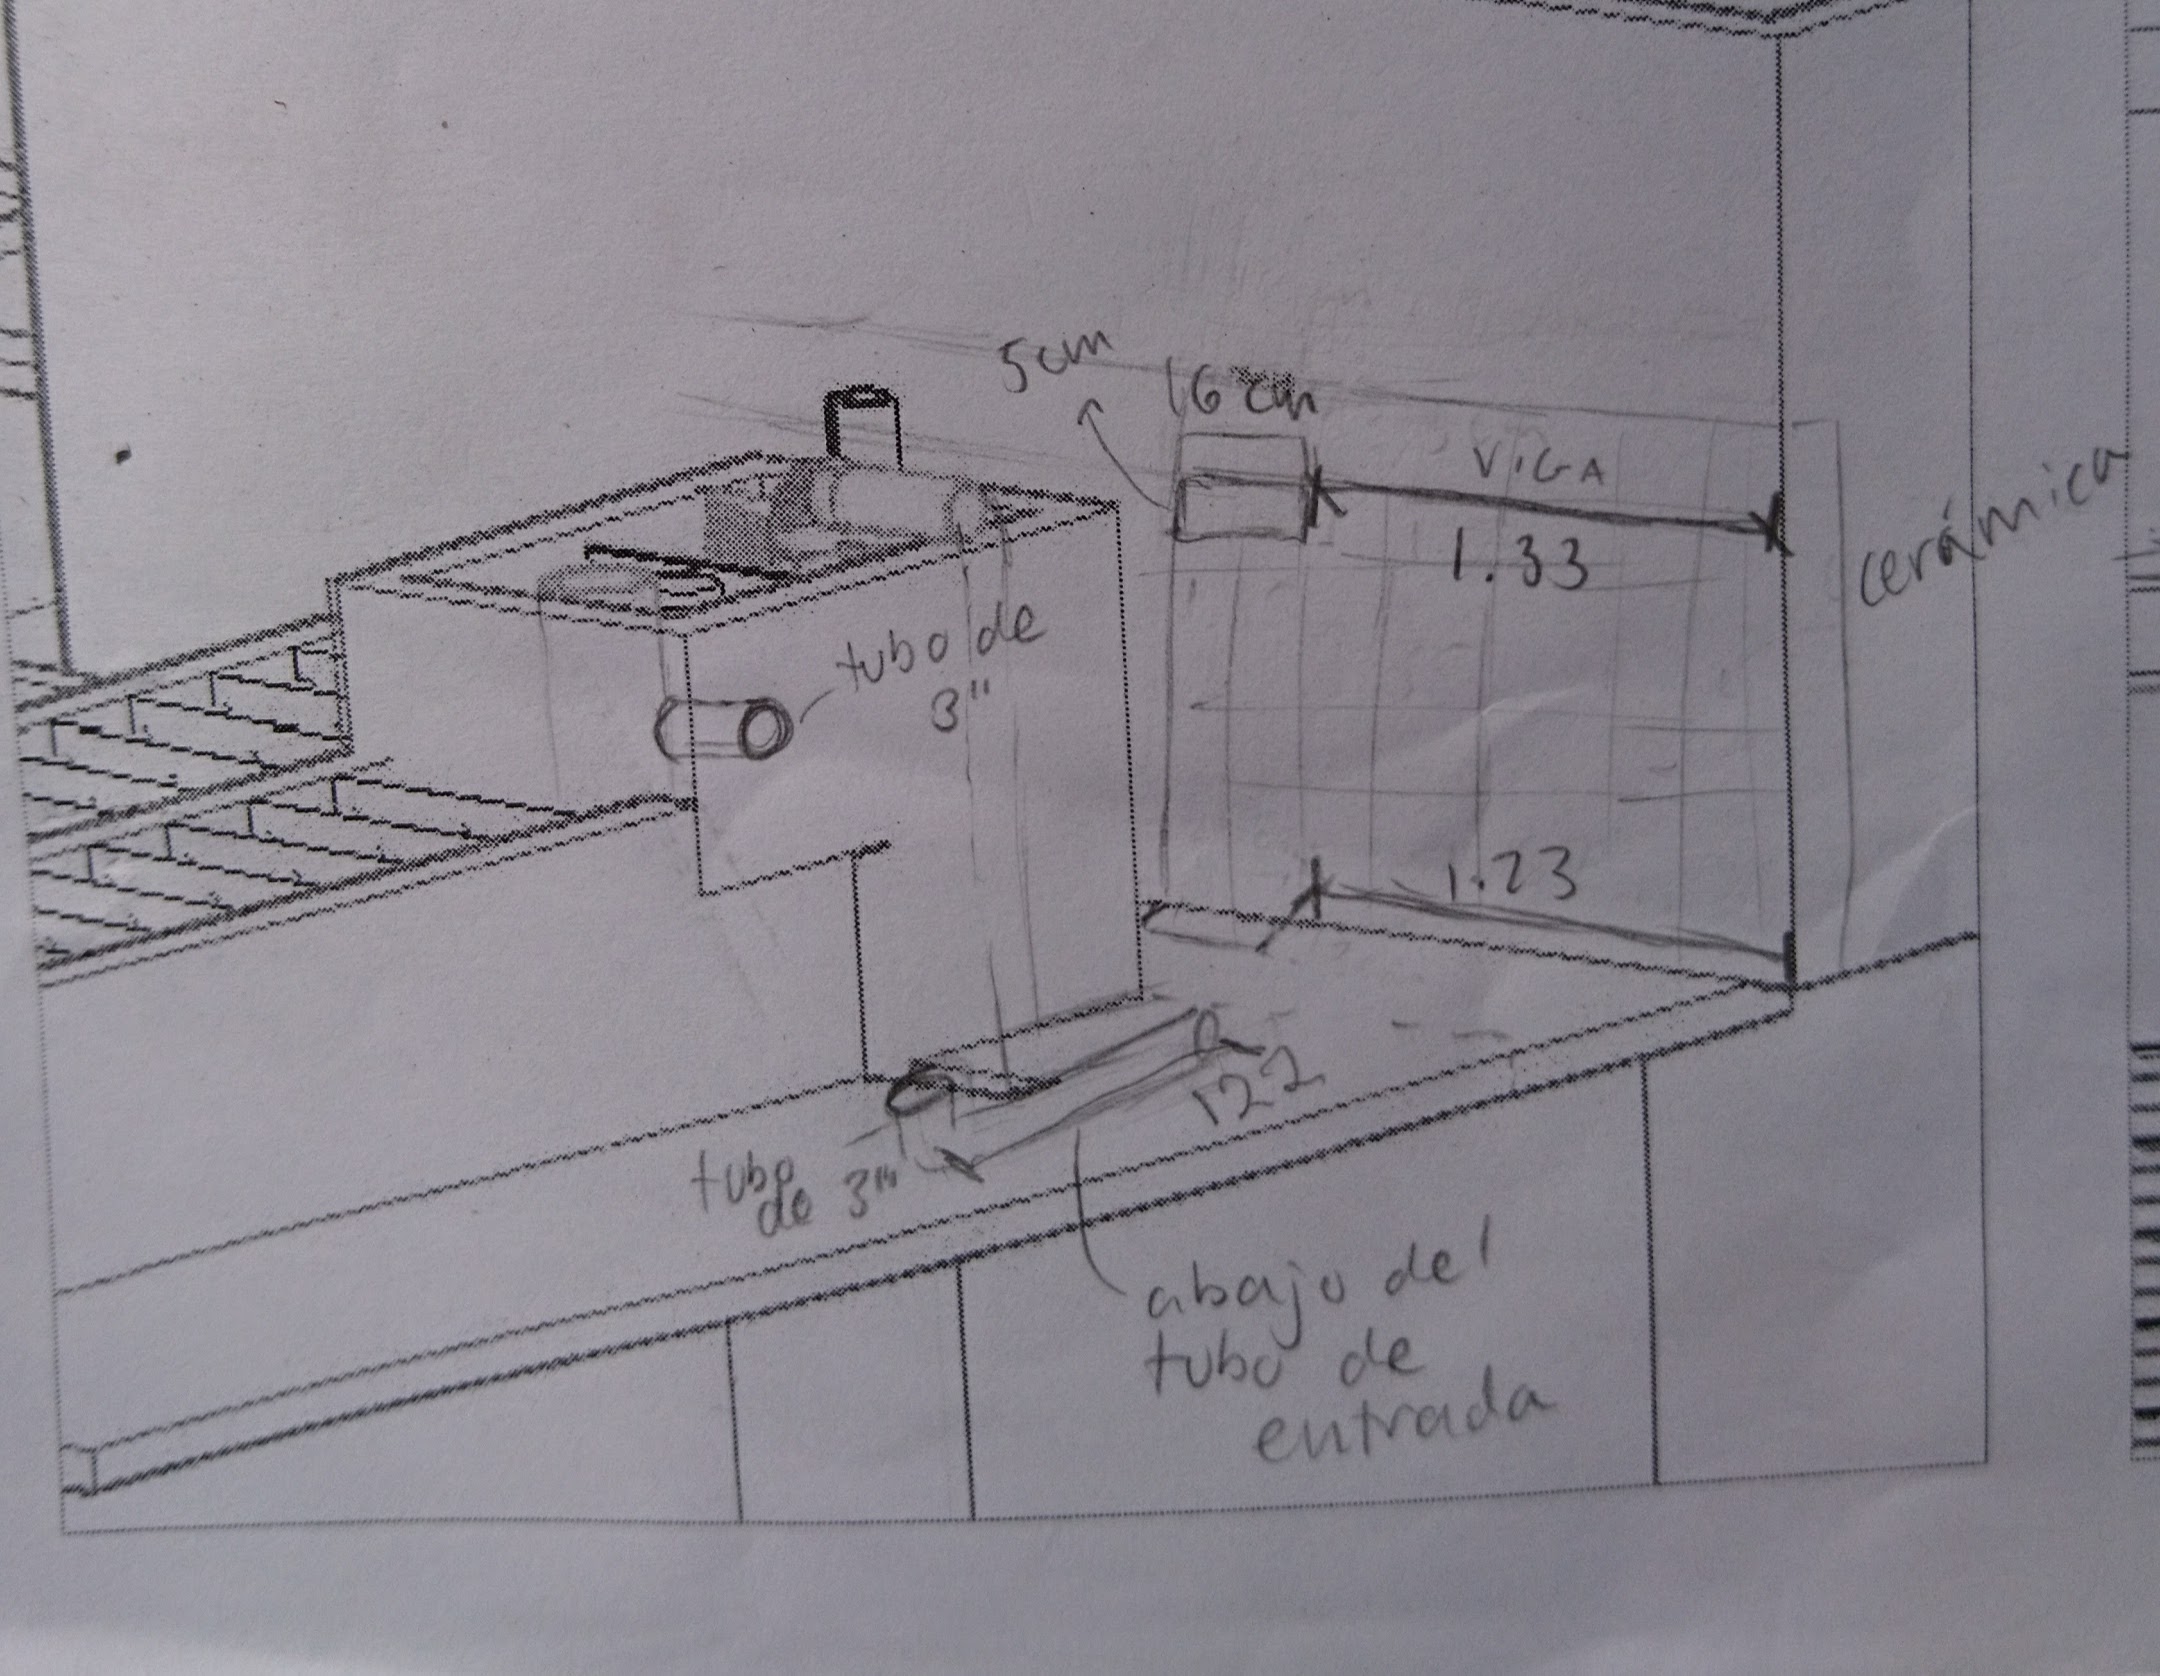 5cm
16 cm
VIGA
1.33
cerámica
tubo de
3"
1.23
122
tubo
de 3"
abajo del
tubo de
entrada